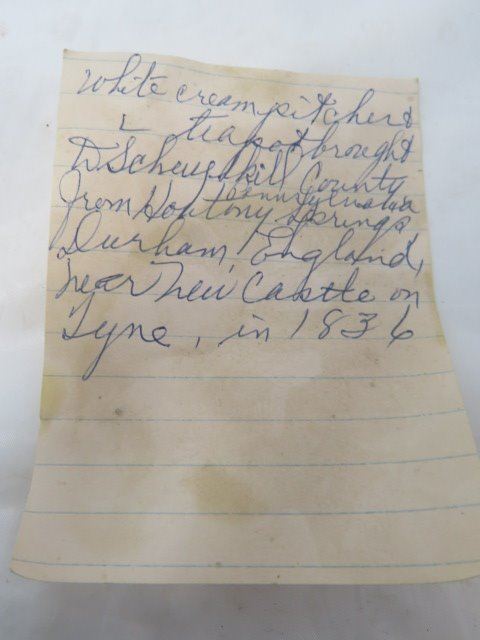 white cream pitcher &
L teapot brought
to Schuylkill County
Pennsylvania
from Houtony Springs,
Durham, England,
near New Castle on
Tyne, in 1836